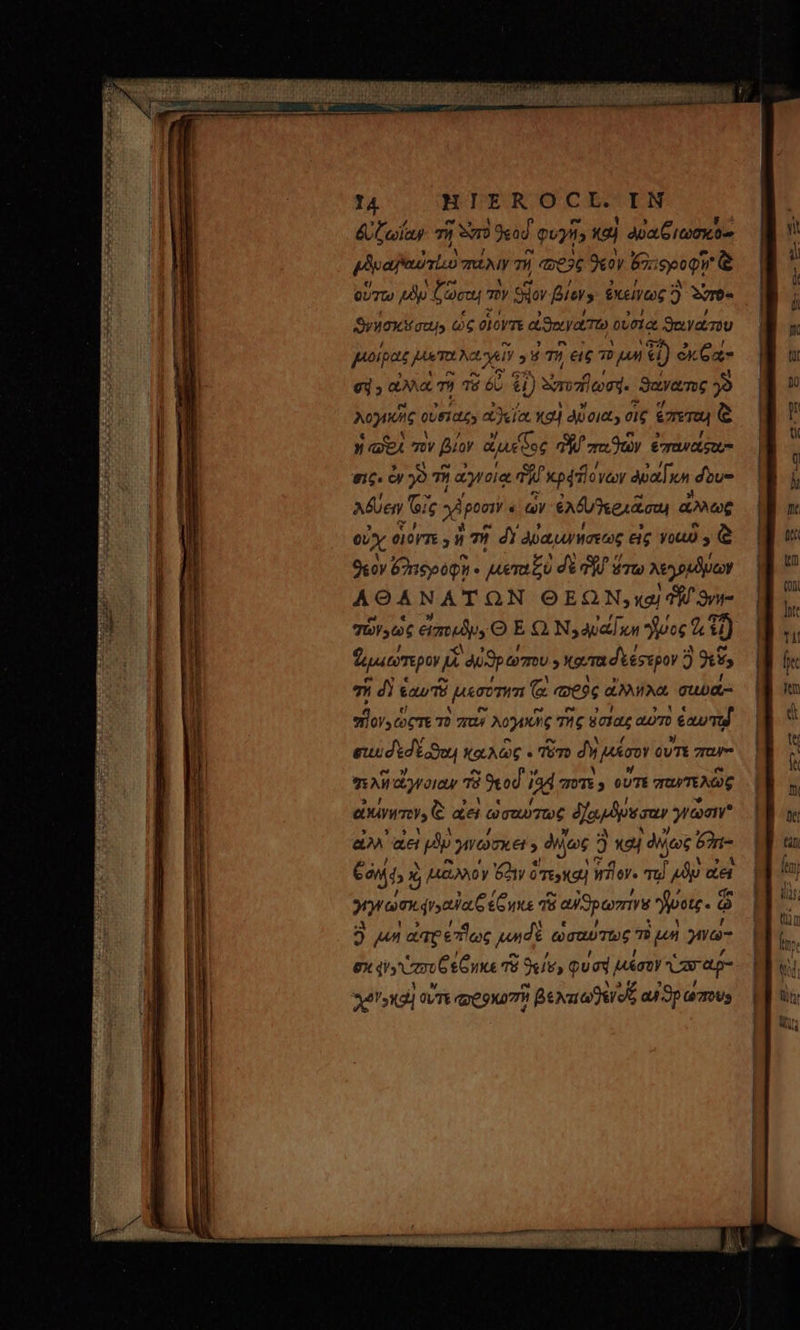 14 HIEROCL. IN
εὐζωΐαν τῇ ἀπὸ θεοῦ φυγῇ, καὶ ἀναβιωσκό-
μεναι αὖ τὴν πάλιν τῇ πρὸς θεὸν ἐπιστροφῇ· καὶ
οὕτω μὲν ζῶσαι τὸν θεῖον βίον, ἐκείνως δὲ ἀπο-
θνήσκουσαι, ὡς οἷόντε ἀθανάτῳ οὐσίᾳ θανάτου
μοίρας μεταλαχεῖν, οὐ τῇ εἰς τὸ μὴ εἶναι ἐκβά-
σει, ἀλλὰ τῇ τοῦ εὖ εἶναι ἀποπτώσει. θάνατος γὰρ
λογικῆς οὐσίας, ἀθεΐα καὶ ἄνοια, οἷς ἕπεται καὶ
ἡ περὶ τὸν βίον ἄμετρος τῶν παθῶν ἐπανάστα-
σις. ἐν γὰρ τῇ ἀγνοίᾳ τῶν κρειττόνων ἀνάγκη δου-
λεύειν τοῖς χείροσιν· ὧν ἐλευθεριᾶσαι ἄλλως
οὐχ οἷόντε, ἢ τῇ δι' ἀναμνήσεως εἰς νοῦν, καὶ
θεὸν ἐπιστροφῇ. μεταξὺ δὲ τῶν οὕτω λεγομένων
ΑΘΑΝΑΤΩΝ ΘΕΩΝ, καὶ τῶν θνη-
τῶν, ὡς εἴπομεν, ΘΕΩΝ, ἀνάγκη γένος τι εἶναι
τιμιώτερον μὲν ἀνθρώπου, καταδεέστερον δὲ θεοῦ,
τῇ δι' ἑαυτοῦ μεσότητι τὰ πρὸς ἄλληλα συνά-
πτον, ὥστε τὸ πᾶν λογικῆς τῆς οὐσίας αὐτὸ ἑαυτῷ
συνδεδέσθαι καλῶς. τοῦτο δὴ μέσον οὔτε παν-
τελῆ ἄγνοιαν τοῦ θεοῦ ἴσχει ποτὲ, οὔτε παντελῶς
ἀκίνητον, καὶ ἀεὶ ὡσαύτως ἐξαμμένην γνῶσιν·
ἀλλ' ἀεὶ μὲν γινώσκει, ἄλλως δὲ καὶ ἄλλως ἐπι-
βάλλει, καὶ μᾶλλον ἔστιν ὅτε, καὶ ἧττον. τῷ μὲν ἀεὶ
γινώσκειν, ἀναβέβηκε τοῦ ἀνθρωπίνου γένους. τῷ
δὲ μὴ ἀτρέπτως μηδὲ ὡσαύτως τὸ μὴ γινώ-
σκειν, ὑποβέβηκε τοῦ θείου, φύσει μέσον ὑπάρ-
χον, καὶ οὔτε προκοπῇ βελτιωθὲν ἐξ ἀνθρώπου,